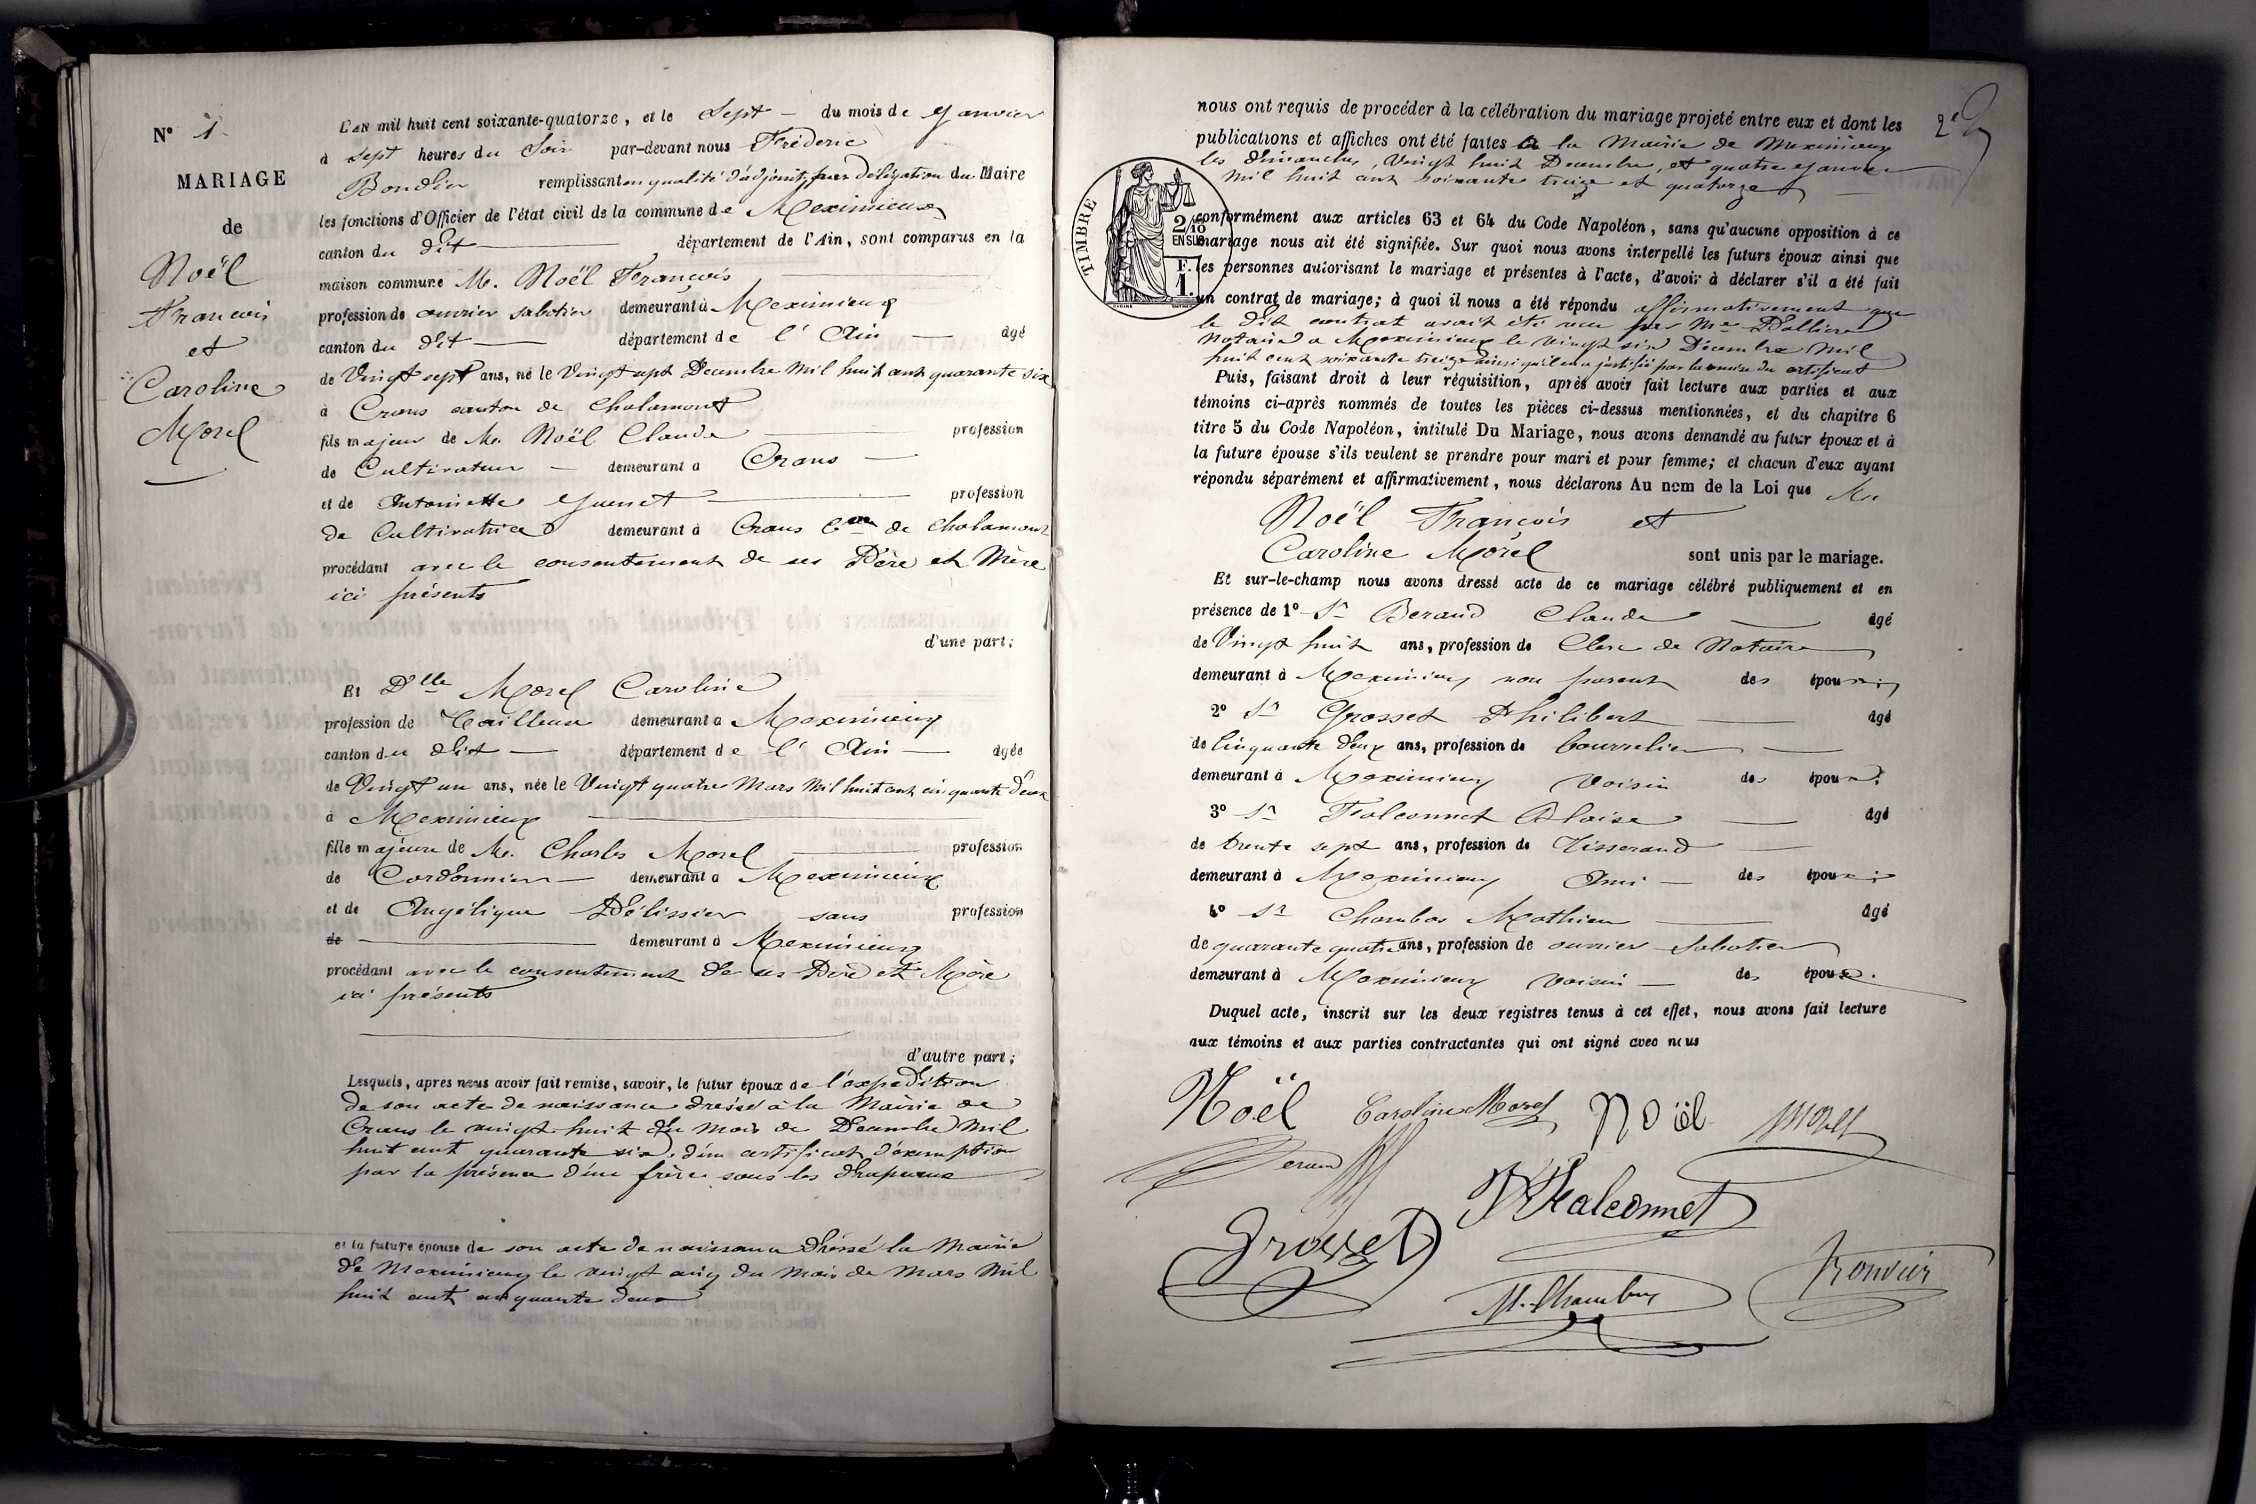 N° 1
MARIAGE
de
Noël
François
et
Caroline
Morel
L'an mil huit cent soixante-quatorze, et le Sept du mois de Janvier
à Sept heures du Soir par-devant nous Frédéric
remplissant en qualité d'adjoint, par délégation du Maire
les fonctions d'Officier de l'état civil de la commune de Meximieux
canton du dit département de l'Ain, sont comparus en la
maison commune Mr. Noël François
profession de ouvrier sabotier demeurant à Meximieux
canton du dit département de l'Ain âgé
de Vingt sept ans, né le Vingt sept Decembre Mil huit cent quarante six
à Crans canton de Chalamont
fils majeur de Mr. Noël Claude profession
de Cultivateur demeurant à Crans
et de Antoinette profession
de Cultivatrice demeurant à Crans Con de Chalamont
procédant avec le consentement de ses Père et Mère
ici présents
d'une part;
Et Dlle Morel Caroline
profession de Tailleuse demeurant à Meximieux
canton du dit département de l'Ain âgée
de Vingt un ans, née le Vingt quatre Mars Mil huit cent cinquante deux
à Meximieux
fille majeure de Mr. Charles Morel profession
de Cordonnier demeurant à Meximieux
et de Angélique Pélissier sans profession
de demeurant à Meximieux
procédant avec le consentement de ses Père et Mère
ici présents
d'autre part;
Lesquels, après nous avoir fait remise, savoir, le futur époux de l'expédition
de son acte de naissance dressé à la Mairie de
Crans le vingt-huit du mois de Decembre Mil
huit cent quarante six, d'un certificat d'exemption
par la présence d'un frère sous les drapeaux
et la future épouse de son acte de naissance dressé la Mairie
de Meximieux le vingt cinq du mois de Mars Mil
huit cent cinquante deux
2e
nous ont requis de procéder à la célébration du mariage projeté entre eux et dont les
publications et affiches ont été faites à la Mairie de Meximieux
les dimanches, Vingt huit Decembre, et quatre Janvier
Mil huit cent soixante treize et quatorze
TIMBRE
2/10
EN SUS
F.
1.
conformément aux articles 63 et 64 du Code Napoléon, sans qu'aucune opposition à ce
mariage nous ait été signifiée. Sur quoi nous avons interpellé les futurs époux ainsi que
les personnes autorisant le mariage et présentes à l'acte, d'avoir à déclarer s'il a été fait
un contrat de mariage; à quoi il nous a été répondu affirmativement que
le dit contrat avait été reçu par Me
Notaire à Meximieux le vingt six Décembre Mil
huit cent soixante treize ainsi qu'il en a justifié par la remise du certificat
Puis, faisant droit à leur réquisition, après avoir fait lecture aux parties et aux
témoins ci-après nommés de toutes les pièces ci-dessus mentionnées, et du chapitre 6
titre 5 du Code Napoléon, intitulé Du Mariage, nous avons demandé au futur époux et à
la future épouse s'ils veulent se prendre pour mari et pour femme; et chacun d'eux ayant
répondu séparément et affirmativement, nous déclarons Au nom de la Loi que Mr.
Noël François et
Caroline Morel sont unis par le mariage.
Et sur-le-champ nous avons dressé acte de ce mariage célébré publiquement et en
présence de 1° Sr Beraud Claude âgé
de Vingt huit ans, profession de Clerc de Notaire
demeurant à Meximieux non parent des époux;
2° Sr Grosset Philibert âgé
de Cinquante deux ans, profession de bourrelier
demeurant à Meximieux voisin des époux;
3° Sr Falconnet Blaise âgé
de trente sept ans, profession de Tisserand
demeurant à Meximieux Ami des époux;
4° Sr Chambos Mathieu âgé
de quarante quatre ans, profession de ouvrier Sabotier
demeurant à Meximieux voisin des époux.
Duquel acte, inscrit sur les deux registres tenus à cet effet, nous avons fait lecture
aux témoins et aux parties contractantes qui ont signé avec nous
Noël Caroline Morel Noël Morel
Beraud
Falconnet
Grosset
M. Chambos